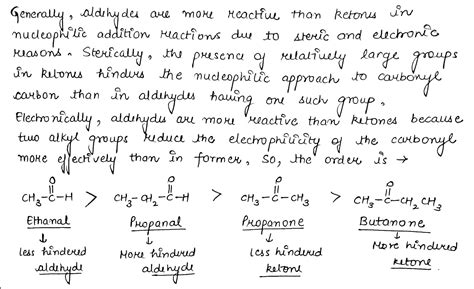 Generally, aldehydes are more reactive than ketones in
nucleophilic addition reactions due to steric and electronic
reasons. Sterically, the presence of relatively large groups
in ketones hinders the nucleophilic approach to carbonyl
carbon than in aldehydes having one such group.
Electronically, aldehydes are more reactive than ketones because
two alkyl groups reduce the electrophilicity of the carbonyl
more effectively than in former, So, the order is →
O O O O
CH3-C-H > CH3-CH2-C-H > CH3-C-CH3 > CH3-C-CH2CH3
Ethanal Propanal Propanone Butanone
↓ ↓ ↓ ↓
less hindered More hindered less hindered More hindered
aldehyde aldehyde ketone ketone